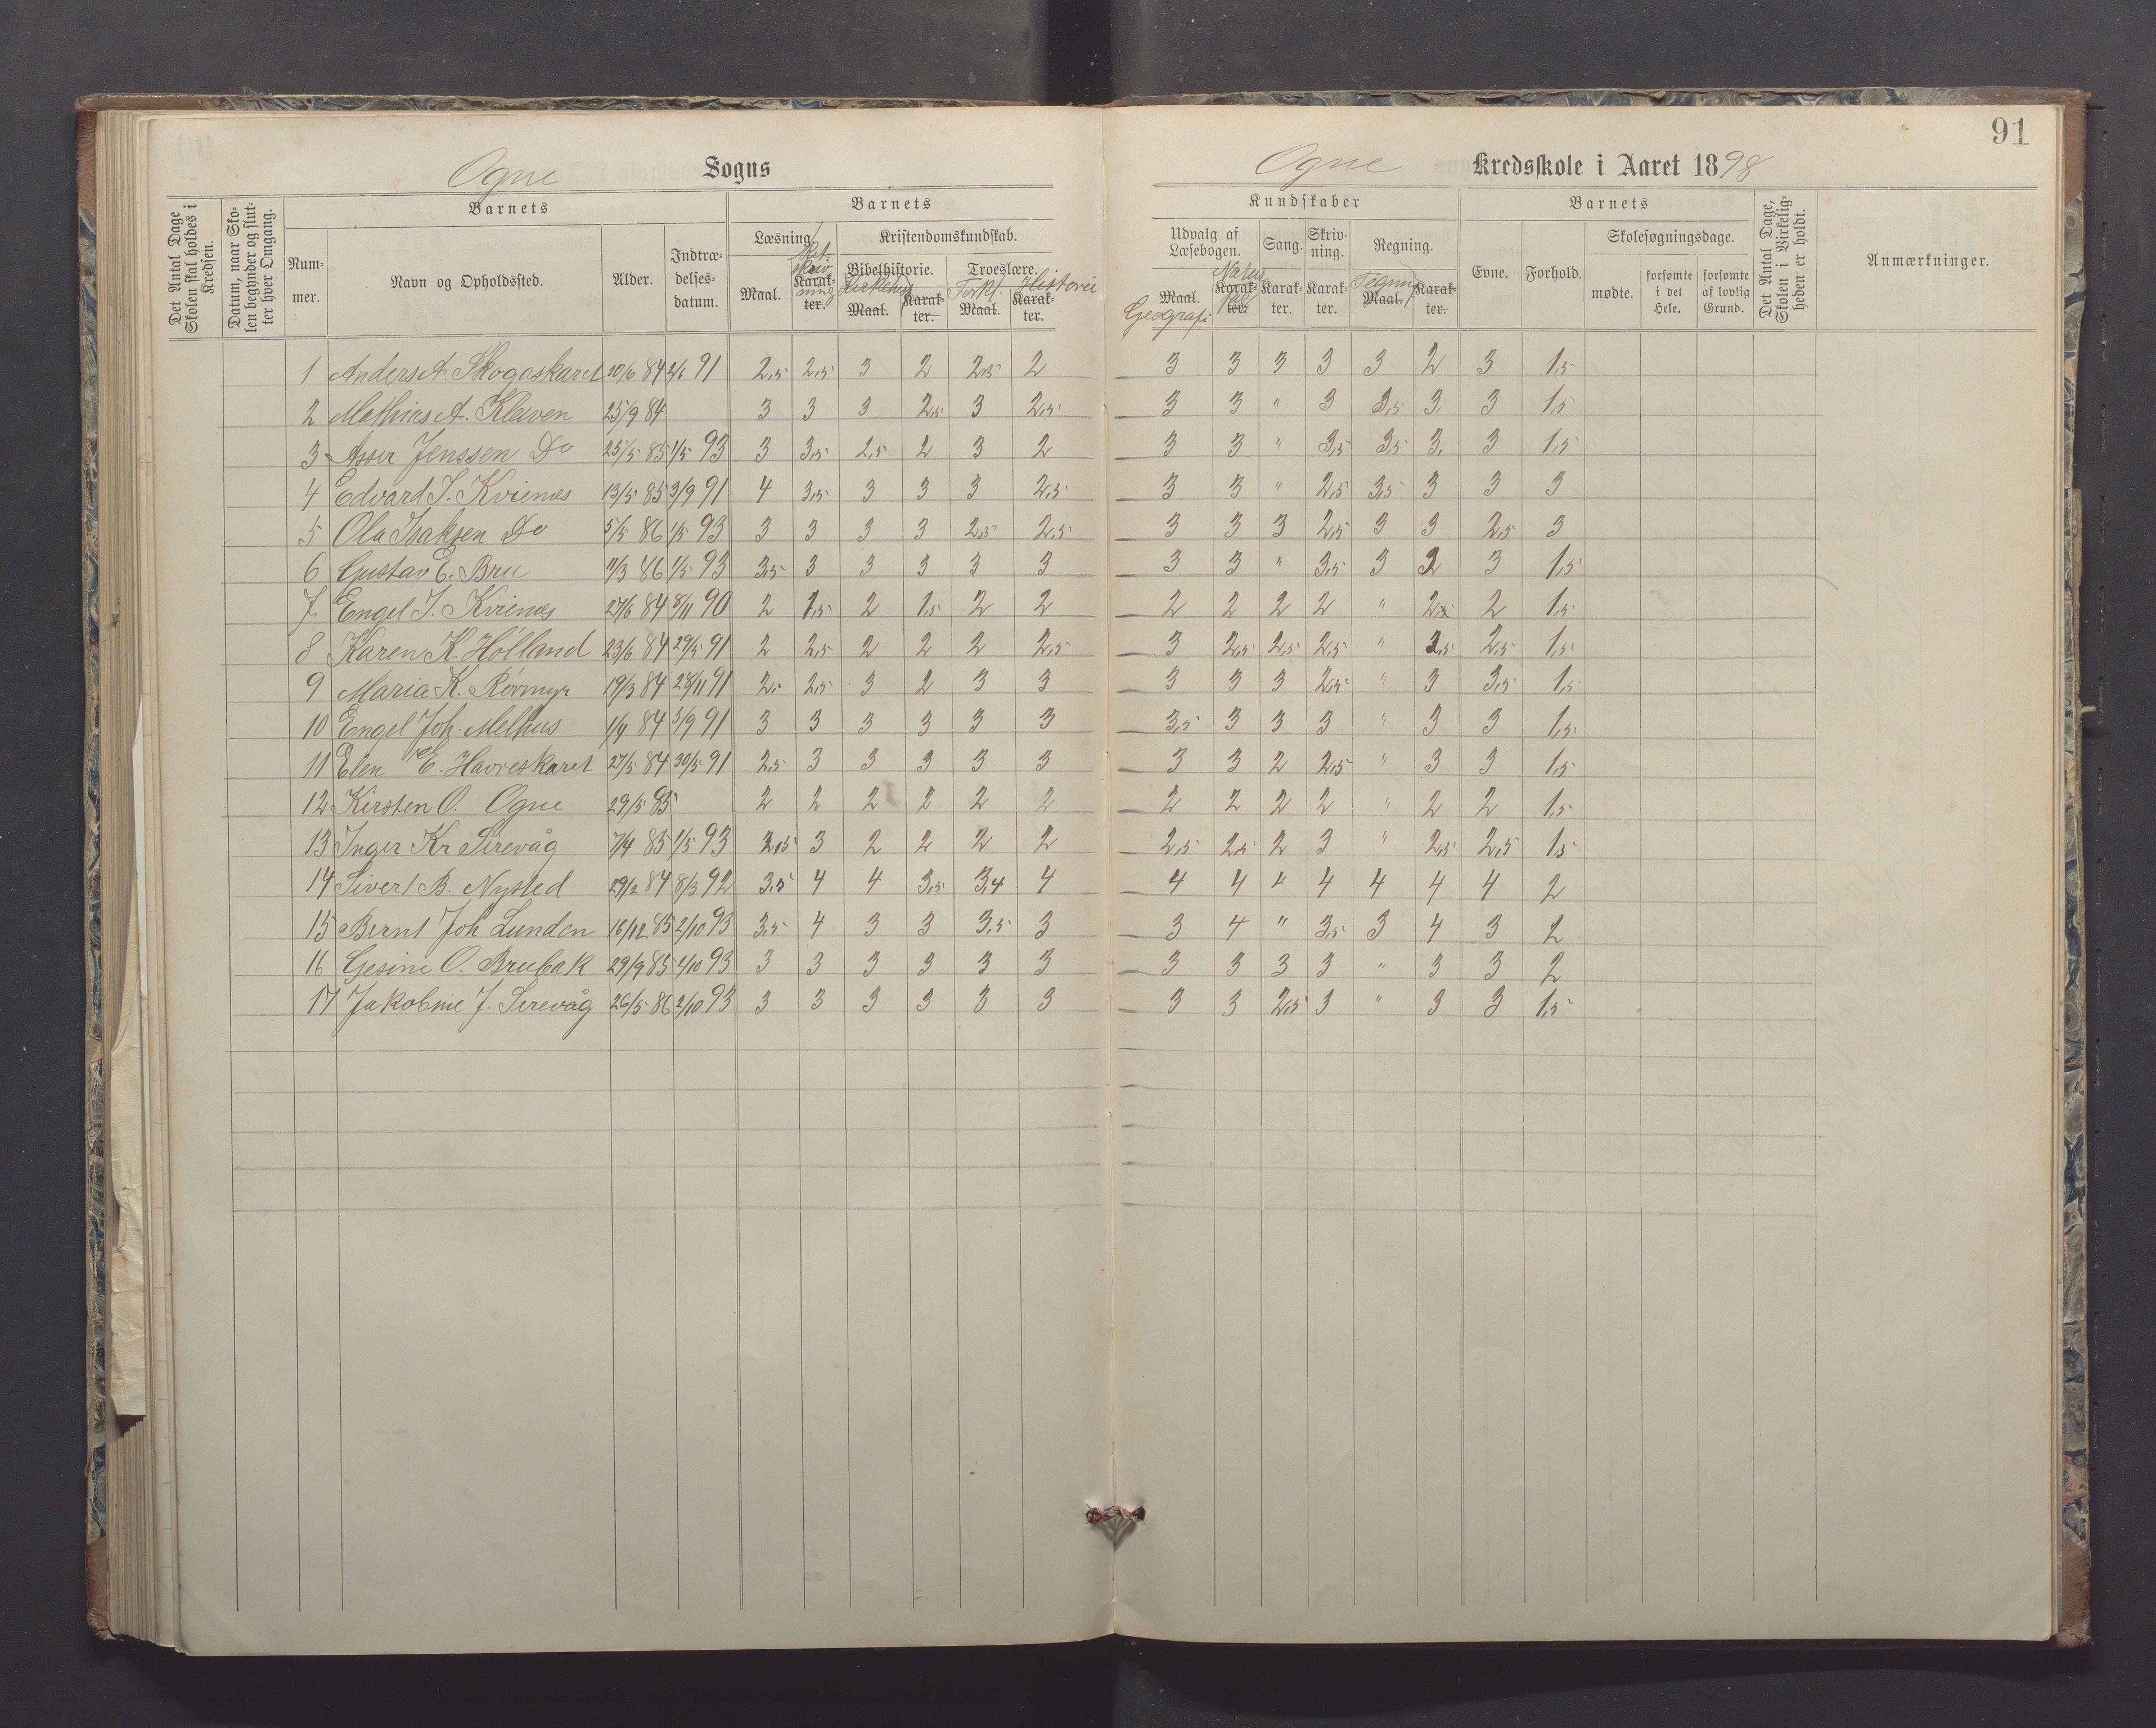 91
Ogne Sogns Ogne Kredsskole i Aaret 1898
Det Antal Dage Skolen skal holdes i Kredsen.
Datum, naar Skolen begynder og slutter hver Omgang.
Barnets
Nummer.
Navn og Opholdssted.
Alder.
Indtrædelsesdatum.
Barnets
Læsning.
Maal.
Karakter.
Retskrivning
Kristendomskundskab.
Bibelhistorie.
Maal.
Kirkehist
Karakter.
Troeslære.
Maal.
Forkl.
Karakter.
Historie
Kundskaber
Udvalg af Læsebogen.
Maal.
Geografi
Karakter.
Naturfag
Sang.
Karakter.
Skrivning.
Karakter.
Regning.
Maal.
Tegning
Karakter.
Barnets
Evne.
Forhold.
Skolesøgningsdage.
mødte.
forsømte i det Hele.
forsømte af lovlig Grund.
Det Antal Dage, Skolen i Virkeligheden er holdt.
Anmærkninger.
1 Anders A. Skogaskaret 20/6 84 2/6 91 2,5 2,5 3 2 2,5 2 3 3 3 3 3 2 3 1,5
2 Mathias A. Kleven 25/9 84 3 3 3 2,5 3 2,5 3 3 " 3 3,5 3, 3 1,5
3 Asser Jenssen Do 25/5 85 1/5 93 3 3,5 2,5 2 3 2 3 3 " 3,5 3,5 3, 3 1,5
4 Edvard I. Kvienes 13/5 85 3/9 91 4 3,5 3 3 3 2,5 3 3 " 2,5 3,5 3 3 3
5 Ola Isaksen Do 5/5 86 1/5 93 3 3 3 3 2,5 2,5 3 3 3 2,5 3 3 2,5 3
6 Gustav E. Bru 11/3 86 1/5 93 3,5 3 3 3 3 3 3 3 " 3,5 3 3 1,5
7 Engel I. Kvienes 27/6 84 3/11 90 2 1,5 2 1,5 2 2 2 2 2 2 " 2 1,5
8 Karen K. Hólland 23/6 84 29/5 91 2 2,5 2 2 2 2,5 3 2,5 2,5 2,5 " 2,5 1,5
9 Maria K. Rörmyr 19/3 84 28/11 91 2, 2,5 3 2 3 3 3 3 3 2,5 " 3 3,5 1,5
10 Engel Joh. Melhus 1/4 84 3/9 91 3 3 3 3 3 3 3,5 3 3 3 " 3 3 1,5
11 Elen E. Havreskaret 27/5 84 30/5 91 2,5 3 3 3 3 3 3 3 2 2,5 " 3 3 1,5
12 Kirsten O. Ogne 29/5 85 2 2 2 2 2 2 2 2 2 2 " 2 2 1,5
13 Inger Kr Sirevåg 7/4 85 1/5 93 2,5 3 2 2 2 2 2,5 2,5 2 3 " 2,5 2,5 1,5
14 Sivert B. Nysted 29/2 84 8/3 92 3,5 4 4 3,5 3,4 4 4 4 4 4 4 4 4 2
15 Bernt Joh Lunden 16/12 85 2/10 93 3,5 4 3 3 3,5 3 3 4 " 3,5 3 4 3 2
16 Gesine O. Brubak 29/9 85 2/10 93 3 3 3 3 3 3 3 3 3 3 " 3 3 2
17 Jakobine J. Sirevåg 26/5 86 2/10 93 3 3 3 3 3 3 3 3 2,5 3 " 3 3 1,5